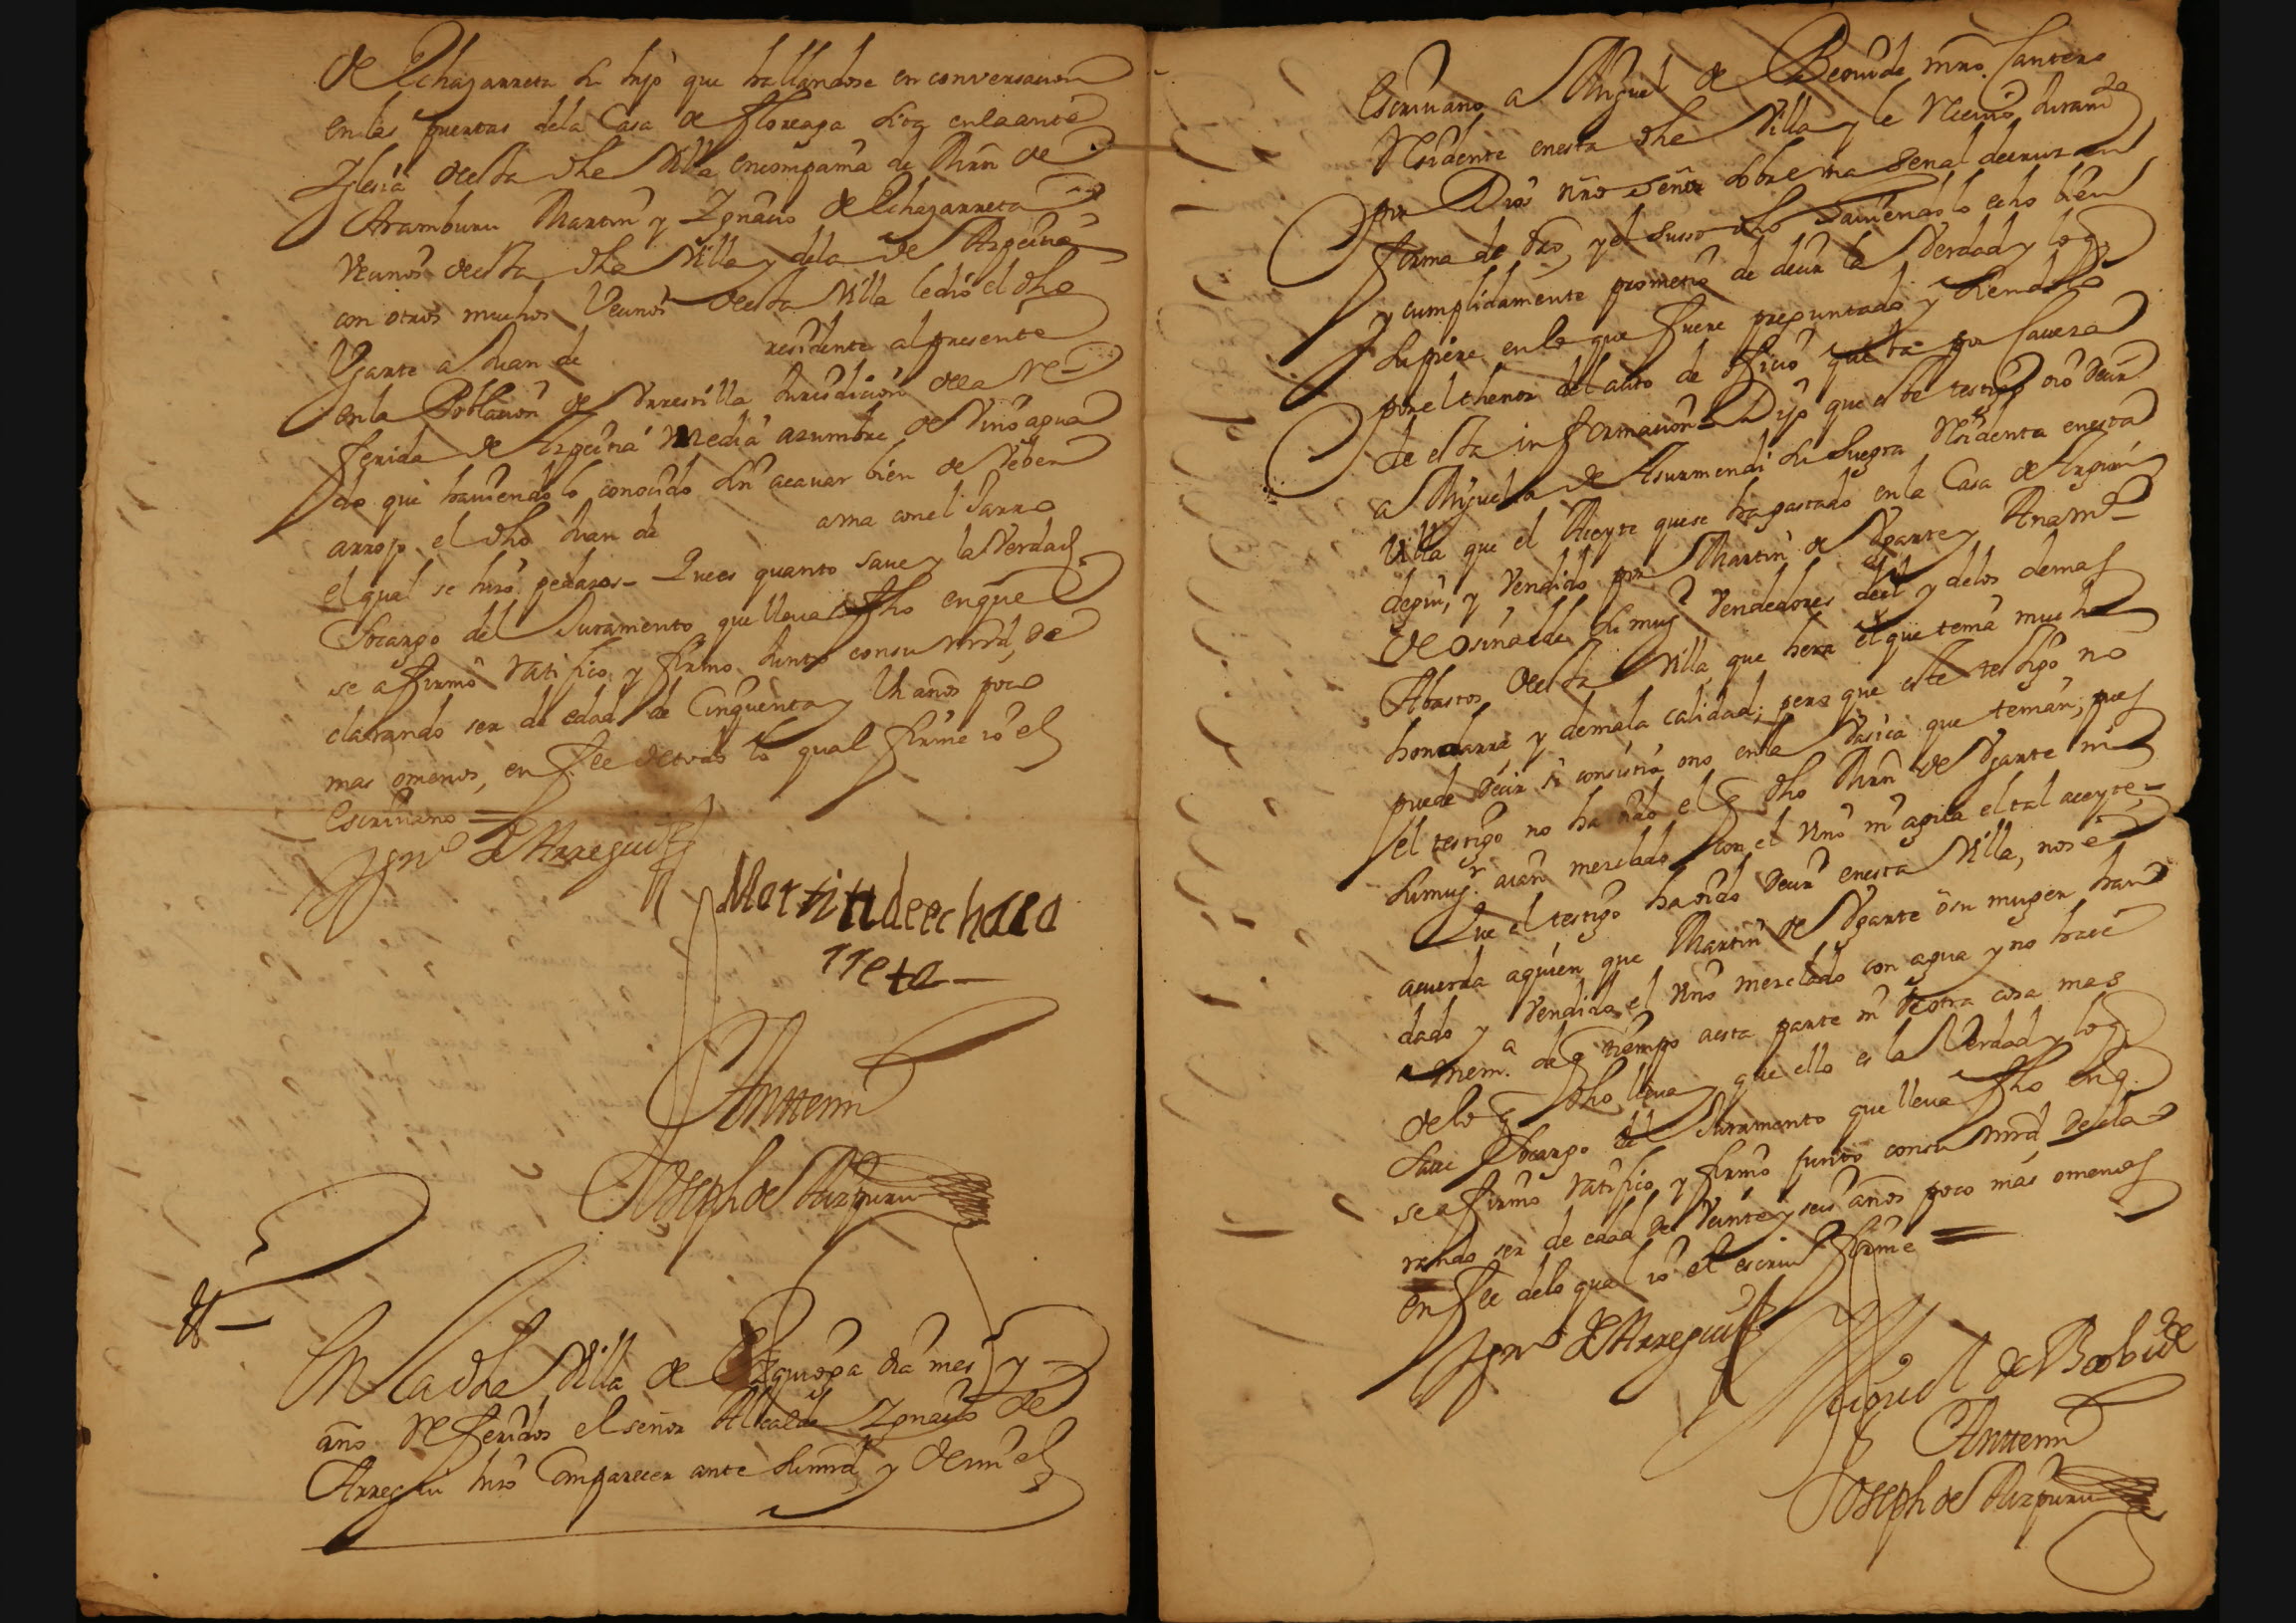 de Echazarreta su hijo que hallandose en conversacion
en las puertas dela Casa de Floreaga sita enla ante
Iglesia desta dha Villa encompañia de Juan de
Aramburu Martin y Ignacio de Echazarreta
Vecinos desta dha Villa y dela de Azpeitia
con otros muchos Vecinos desta Villa le dio el dho
Ugarte a Juan de residente al presente
en la Poblacion de Urrestilla Jurisdicion dela re-
ferida de Azpeitia media azumbre de Vino agua
do que haviendolo conocido sin acavar bien de beber
arrojo el dho Juan de con el Jarro
el qual se hizo pedazos - Que es quanto save y la Verdad
Socargo del Juramento que lleva fho en que
se afirmo ratifico y firmo Junto con su mrd, de
clarando ser de edad de Cinquenta y Un años poco
mas omenos, en fee de todo lo qual firme io el
Escrivano =
Ignº de Arregui
Martin de echaca
rreta -
Antte mi
Joseph de Aizpuru
En la dha Villa de Azcoitia dia mes y
año referidos el señor Alcalde Ignacio de
Arregui hizo Comparecer ante su mrd y de mi el
Escrivano a Miguel de Beovide mro. Cantero
Residente en esta dha Villa y le recivio Juramto
por Dios nro Señor sobre una señal de cruz en
forma de dro, y el susso dho haviendolo echo bien
y cumplidamente prometio de decir la Verdad y lo q.
supiere en lo que fuere preguntado y siendolo
por el thenor del auto de oficio que esta por cavera
de esta informacion - Dijo que este testigo oio decir
a Miguela de Asurmendi su suegra residenta en esta
Villa que el Aceyte que se ha gastado en la Casa de
y Vendido por Martin de Ugarte y Ana Mª
de su mugr Vendedores del y delos demas
Abastos desta Villa, que hera el que tema mucha
hondarra, y de mala calidad; pero que este testigo no
puede decir si consistia ono en la Vasija que tenian, pues
el testigo no ha oido el q dho Juan de Ugarte ni
su mugr. aian mezclado con el Vino ni agua el tal aceyte -
Que el testigo ha oido decir en esta Villa, nos e
acuerda aquien que Martin de Ugarte o su muger han
dado y Vendido el Vino mezclado con agua y no hace
mema. de q tiempo a esta parte ni de otra cosa mas
de lo q dho lleva y que ello es la Verdad y lo q.
save Socargo del Juramento que lleva fho en q.
se afirmo ratifico y firmo junto con su mrd decla-
rando ser de edad de Veinte y seis años poco mas omenos
en fee de lo qual io el escrivº firme =
Ignº de Arregui
Miguel de Beobide
Antte mi
Joseph de Aizpuru